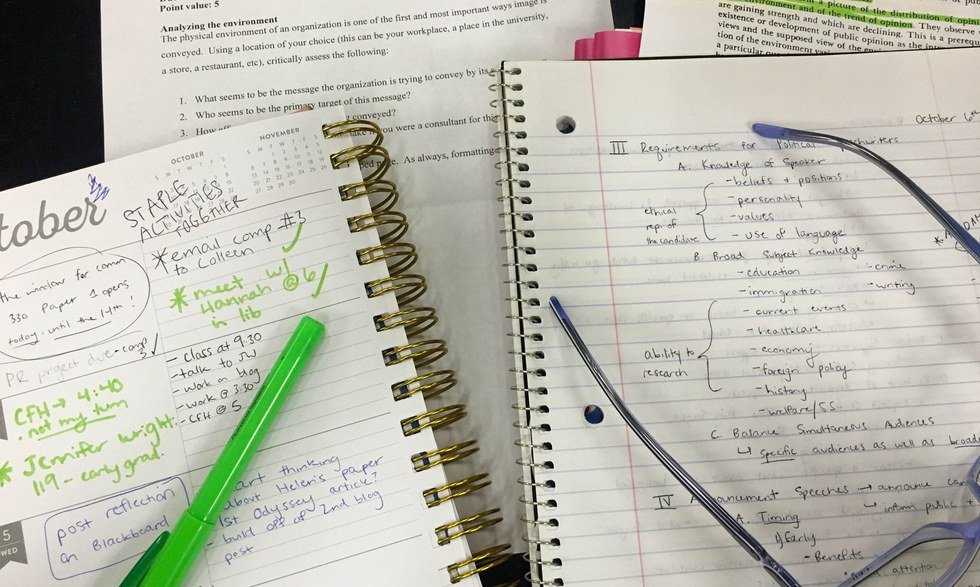 Point value: 5
Analyzing the environment
The physical environment of an organization is one of the first and most important ways image is
conveyed. Using a location of your choice (this can be your workplace, a place in the university,
a store, a restaurant, etc), critically assess the following:
1. What seems to be the message the organization is trying to convey by its
2. Who seems to be the primary target of this message?
3. How
conveyed?
you were a consultant for this
As always, formatting
a picture of the distribution of
environment and of the trend of opinion. They observe
are gaining strength and which are declining. This is a
existence or development of public opinion as the
views and the supposed view of the
tion of the environment
a particular
tober
OCTOBER
NOVEMBER
STAPLE
ACTIVITIES
TOGETHER
* email comp #3
to Colleen
* meet w/
Hannah @ 6
in lib
- class at 9:30
- talk to JW
- work on blog
- work @ 3:30
- CFH @ 5
the window for comm
330 Paper 1 opens
today until the 14th!
PR project due - comp
3
CFH → 4:40
· not my turn
* Jennifer Wright.
119 - early grad.
5
WED
post reflection
on Blackboard
art thinking
about Helen's paper
1st Odyssey article?
- build off of 2nd blog
post
October 6th
III Requirements for Political
A. Knowledge of Speaker
- beliefs + positions
- personality
- values
- use of language
ethical
rep. of
the candidate
B. Broad Subject Knowledge
- education
- crime
- immigration
- writing
- current events
- healthcare
- economy
- foreign policy
- history
- welfare/SS
ability to
research
C. Balance Simultaneous Audiences
↳ specific audiences as well as broad
IV Announcement Speeches → announce
↳ inform public +
A. Timing
1) Early
- Benefits
attention